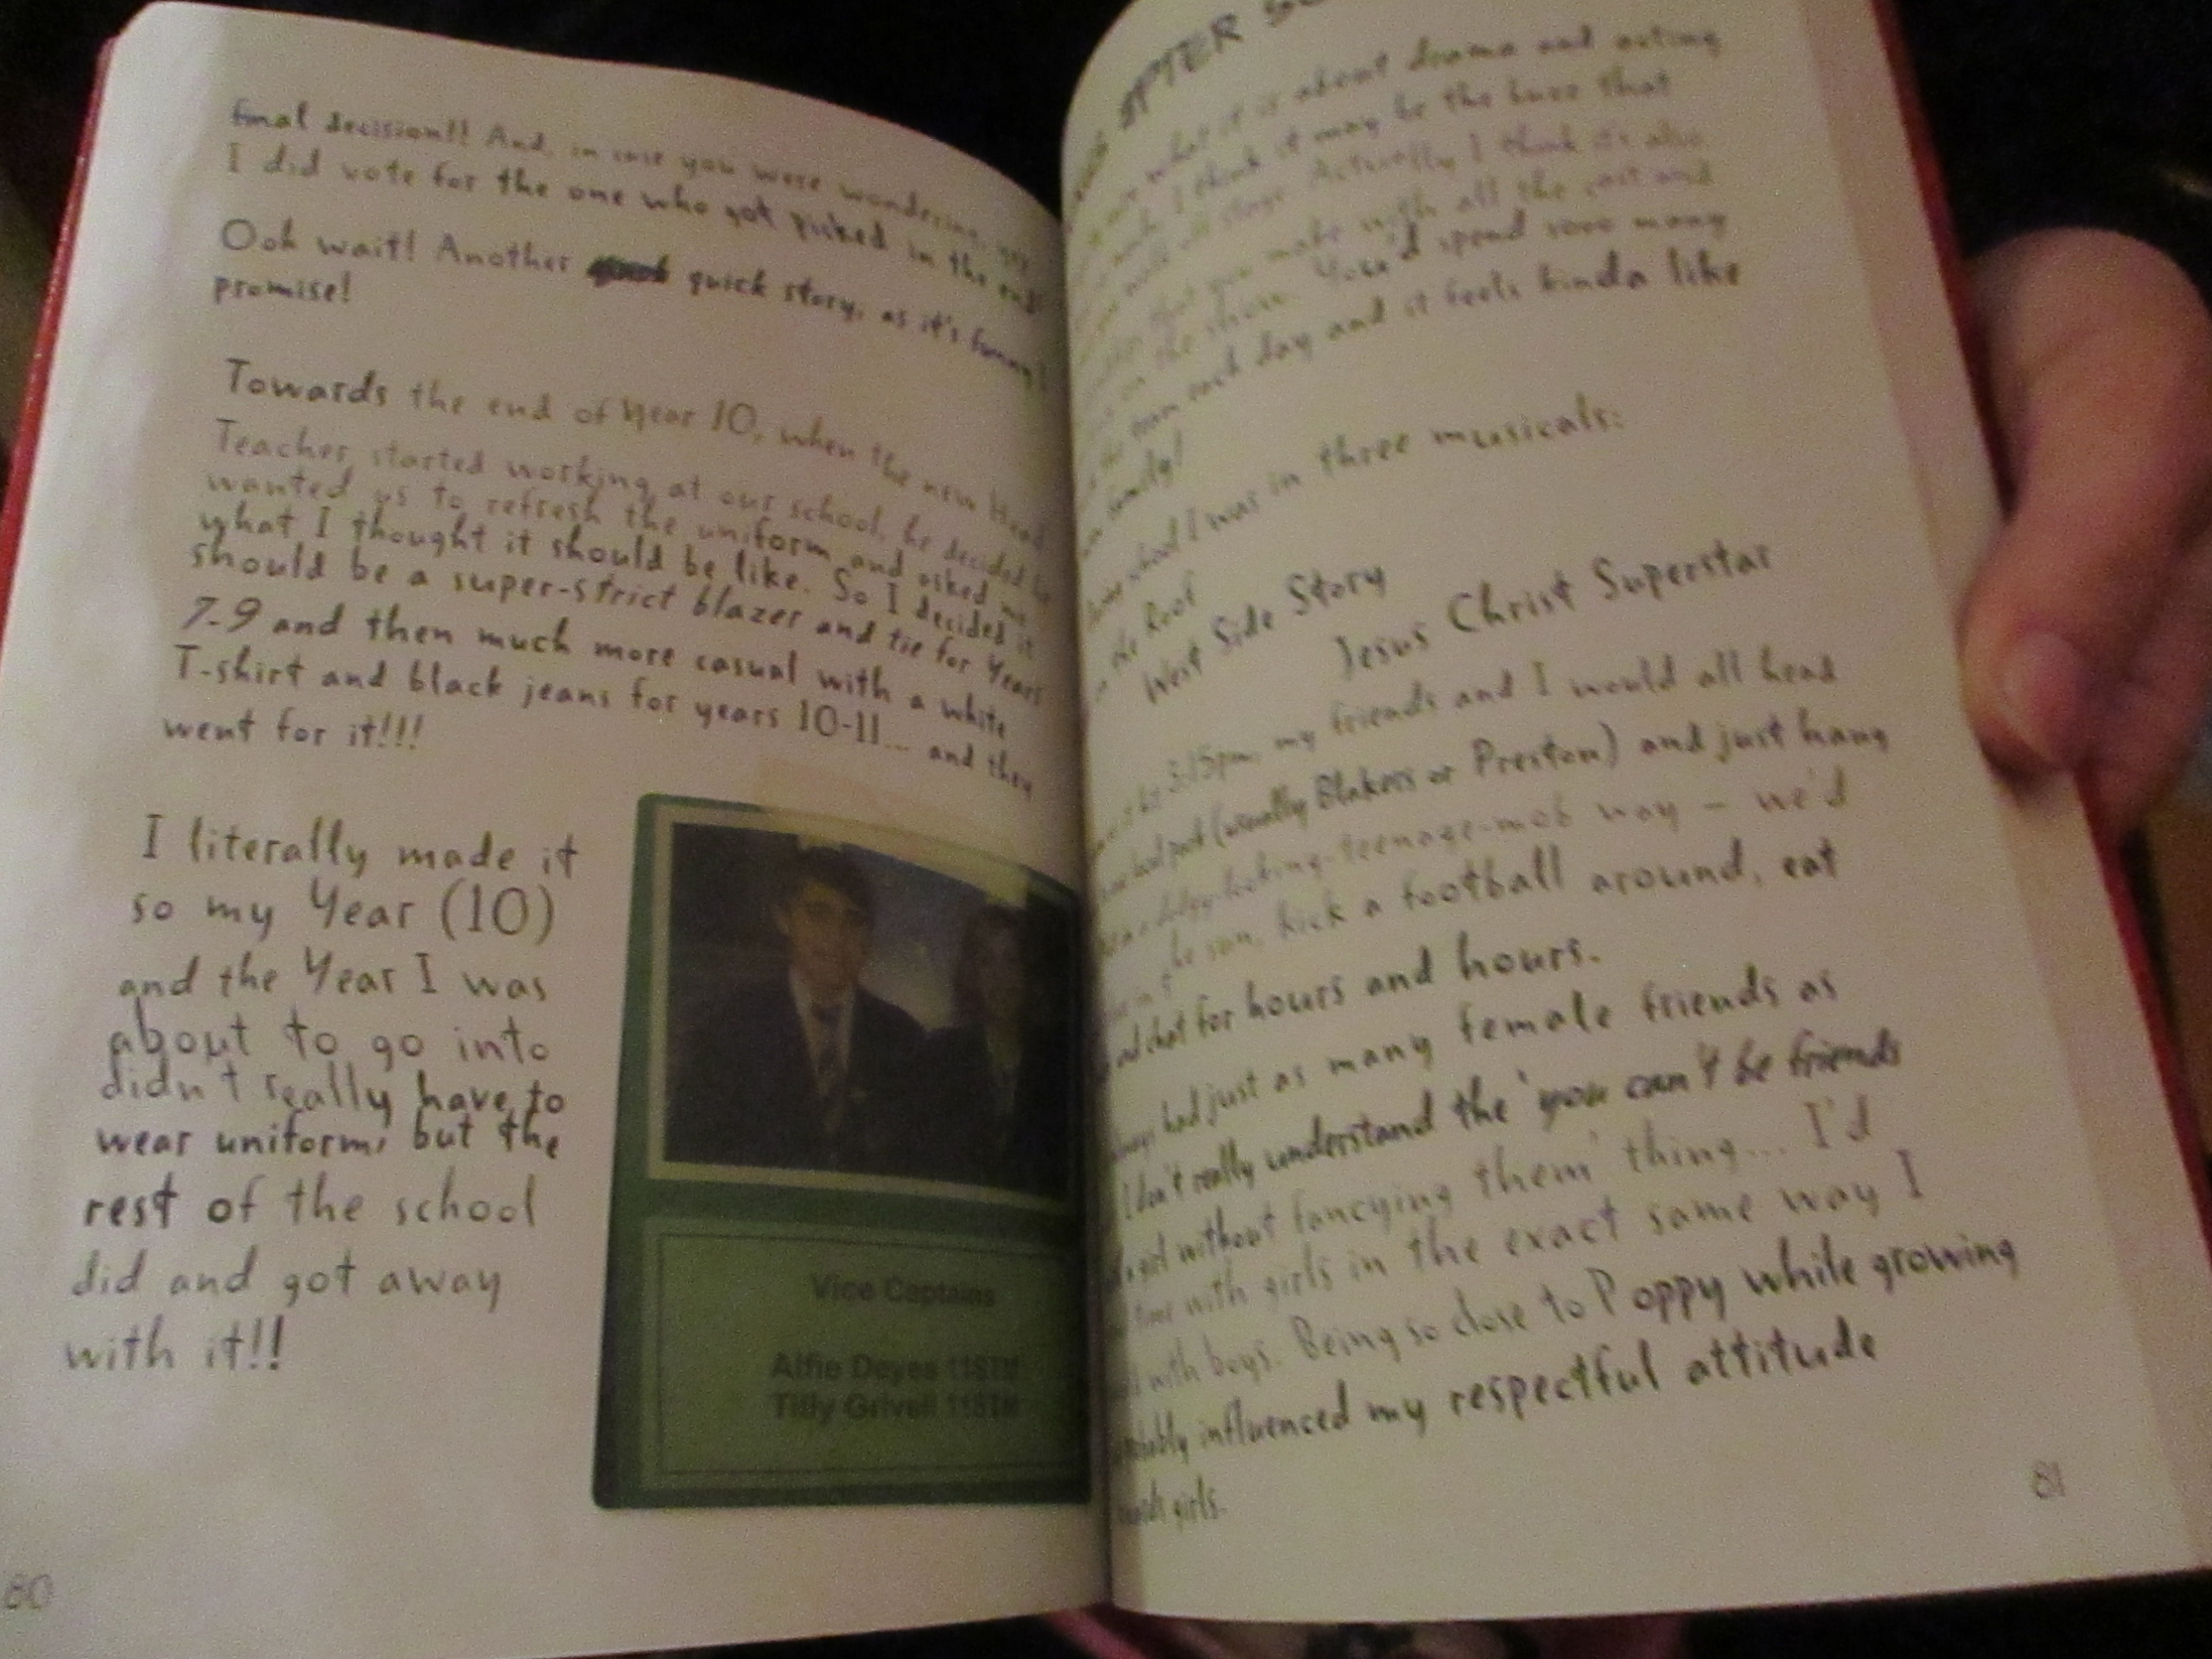 final decision!! And, in case you were wondering, yes
I did vote for the one who got picked in the end!
Ooh wait! Another quick story, as it's funny I
promise!
Towards the end of Year 10, when the new Head
Teacher started working at our school, he decided he
wanted us to refresh the uniform and asked me
what I thought it should be like. So I decided it
should be a super-strict blazer and tie for Years
7-9 and then much more casual with a white
T-shirt and black jeans for years 10-11... and they
went for it!!!
I literally made it
so my Year (10)
and the Year I was
about to go into
didn't really have to
wear uniform, but the
rest of the school
did and got away
with it!!
Vice Captains
Alfie Deyes 11STM
Tilly Grivell 11STM
80
what it is about drama and acting
I think it may be the buzz that
stage. Actually I think it's also
that you make with all the cast and
on the show. You'd spend sooo many
each day and it feels kinda like
family!
school I was in three musicals:
the Roof
West Side Story
Jesus Christ Superstar
3:15pm, my friends and I would all head
local park (usually Blakers or Preston) and just hang
a dodgy-looking-teenage-mob way – we'd
in the sun, kick a football around, eat
and chat for hours and hours.
had just as many female friends as
I don't really understand the 'you can't be friends
a girl without fancying them' thing... I'd
time with girls in the exact same way I
with boys. Being so close to Poppy while growing
probably influenced my respectful attitude
girls.
81